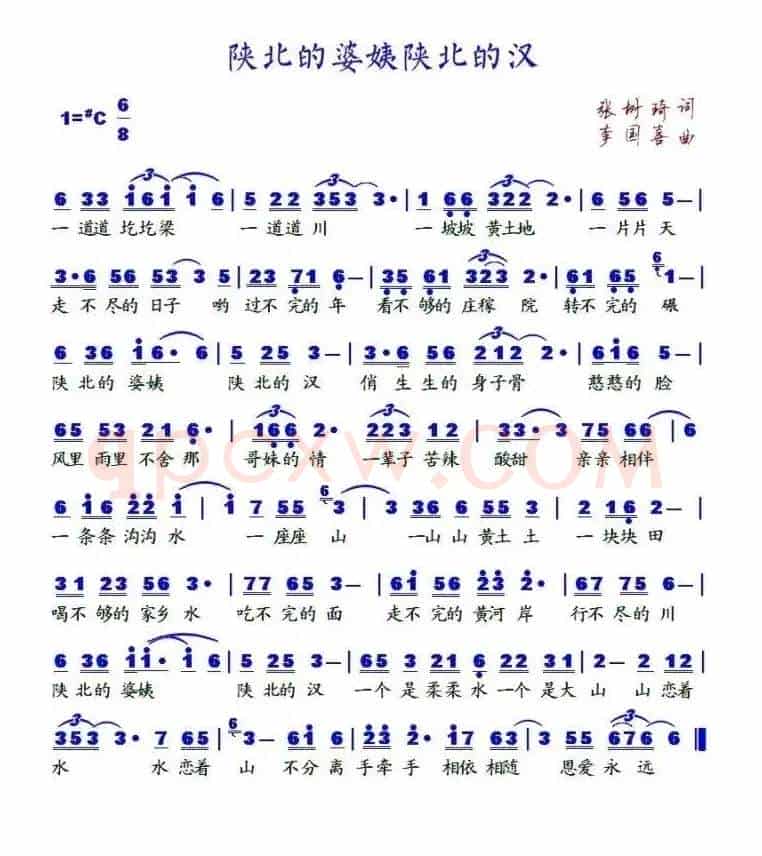 陕北的婆姨陕北的汉
1=#C 6/8
张树琦 词
李国喜 曲
6 33 161 1 6 | 5 22 353 3· | 1 66 322 2· | 6 56 5— |
一 道道 圪圪梁 一 道道 川 一 坡坡 黄土地 一 片片 天
3·6 56 53 3 5 | 23 71 6— | 35 61 323 2· | 61 65 6 1— |
走 不 尽的 日子 哟 过不 完的 年 看不 够的 庄稼 院 转不 完的 碾
6 36 16· 6 | 5 25 3— | 3·6 56 212 2· | 616 5— |
陕 北的 婆姨 陕 北的 汉 俏 生 生的 身子骨 憨憨的 脸
65 53 21 6· | 166 2· | 223 12 | 33· 3 75 66 | 6
风里 雨里 不舍 那 哥妹的 情 一辈子 苦辣 酸甜 亲亲 相伴
qpcxw.COM
一 条条 沟沟 水 一 座座 山 一山 山 黄土 土 一 块块 田
31 23 56 3· | 77 65 3— | 61 56 23 2· | 67 75 6— |
喝不 够的 家乡 水 吃不 完的 面 走不 完的 黄河 岸 行不 尽的 川
6 36 11· 1 6 | 5 25 3— | 65 3 21 6 | 22 2 35 | 2— 2 12 |
陕 北的 婆姨 陕 北的 汉 一个 是 柔柔 水 一个 是大 山 山 恋着
353 3· 7 65 | 6 3— 35 6 | 23 2· 17 63 | 3 55 676 6
水 水 恋着 山 不分 离 手牵 手 相依 相随 恩爱 永 远